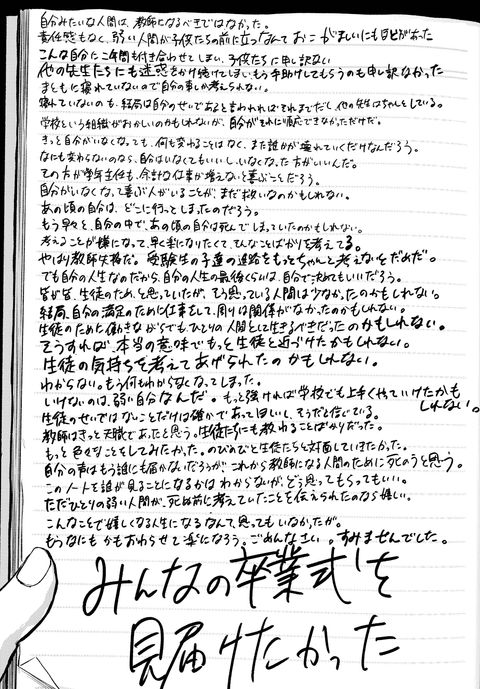 自分みたいな人間は、教師になるべきではなかった。
責任感もなく、弱い人間が子供たちの前に立つなんておこがましいにも程があった
こんな自分に二年間も付き合わせてしまい、子供たちに申し訳ない
他の先生たちにも迷惑をかけ続けてしまい、もう手助けしてもらうのも申し訳なかった
まともに寝れていないので自分の事しか考えられない。
寝れていないのも、結局は自分のせいであると言われればそれまでだし、他の先生はちゃんとしている。
学校という組織がおかしいのかもしれないが、自分がそれに順応できなかっただけだ。
きっと自分がいなくなっても、何も変わることはなく、また誰かが壊れていくだけなんだろう。
なにも変わらないのなら、自分はいなくてもいいし、いなくなった方がいいんだ。
その方が学年主任も、余計な仕事が増えないと喜ぶことだろう。
自分がいなくなって喜ぶ人がいることが、まだ救いなのかもしれない。
あの頃の自分は、どこに行ってしまったのだろう。
もう早々と、自分の中で、あの頃の自分は死んでしまっていたのかもしれない。
考えることが嫌になって、早く楽になりたくて、そんなことばかりを考えてる。
やはり教師失格だ。受験生の子達の進路をもっとちゃんと考えないとだめだ。
でも自分の人生なのだから、自分の人生の最後くらいは、自分で決めてもいいだろう。
皆が皆、生徒のため、と思っていたが、そう思っている人間は少なかったのかもしれない。
結局、自分の満足のために仕事をして、周りは関係がなかったのかもしれない。
生徒のためと働きながらでも、ひとりの人間として生きるべきだったのかもしれない。
そうすれば、本当の意味でもっと生徒と近づけたかもしれない。
生徒の気持ちを考えてあげられたのかもしれない。
わからない。もう何もわからなくなってしまった。
いけないのは、弱い自分なんだ。もっと強ければ学校でも上手くやっていけたかも
しれない。
生徒のせいではないことだけは確かであってほしいし、そうだと信じている。
教師はきっと天職であったと思う。生徒たちにも教わることばかりだった。
もっと色々なことをしてみたかった。のびのびと生徒たちと対面していきたかった。
自分の声はもう誰にも届かないだろうが、これから教師になる人間のために死のうと思う。
このノートを誰が見ることになるかはわからないが、どう思ってもらってもいい。
ただひとりの弱い人間が、死ぬ前に考えていたことを伝えられたのなら嬉しい。
こんなことで嬉しくなる人生になるなんて、思ってもいなかったが。
もうなにもかもおわらせて楽になろう。ごめんなさい。すみませんでした。
みんなの卒業式を
見届けたかった